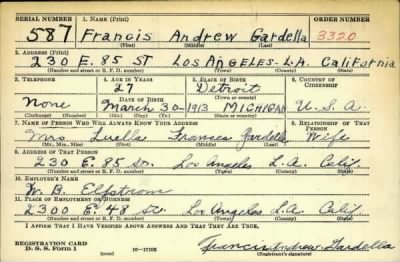 SERIAL NUMBER 1. NAME (Print) ORDER NUMBER
587 Francis Andrew Gardella 3320
(First) (Middle) (Last)
2. ADDRESS (Print)
230 E. 85 ST LOS ANGELES - L.A. California
(Number and street or R. F. D. number) (Town) (County) (State)
3. TELEPHONE 4. AGE IN YEARS 5. PLACE OF BIRTH 6. COUNTRY OF CITIZENSHIP
27 Detroit
DATE OF BIRTH (Town or county)
None March 30-1913 MICHIGAN U.S.A.
(Exchange) (Number) (Mo.) (Day) (Yr.) (State or country)
7. NAME OF PERSON WHO WILL ALWAYS KNOW YOUR ADDRESS 8. RELATIONSHIP OF THAT PERSON
Mrs Luella Frances Gardella Wife
(Mr., Mrs., Miss) (First) (Middle) (Last)
9. ADDRESS OF THAT PERSON
230 E. 85 St. Los Angeles L.A. Calif.
(Number and street or R. F. D. number) (Town) (County) (State)
10. EMPLOYER'S NAME
W. B. Elfstrom
11. PLACE OF EMPLOYMENT OR BUSINESS
2300 E. 48 St. Los Angeles L.A. Calif.
(Number and street or R. F. D. number) (Town) (County) (State)
I AFFIRM THAT I HAVE VERIFIED ABOVE ANSWERS AND THAT THEY ARE TRUE.
REGISTRATION CARD
D. S. S. Form 1 (over) Francis Andrew Gardella
(Registrant's signature)